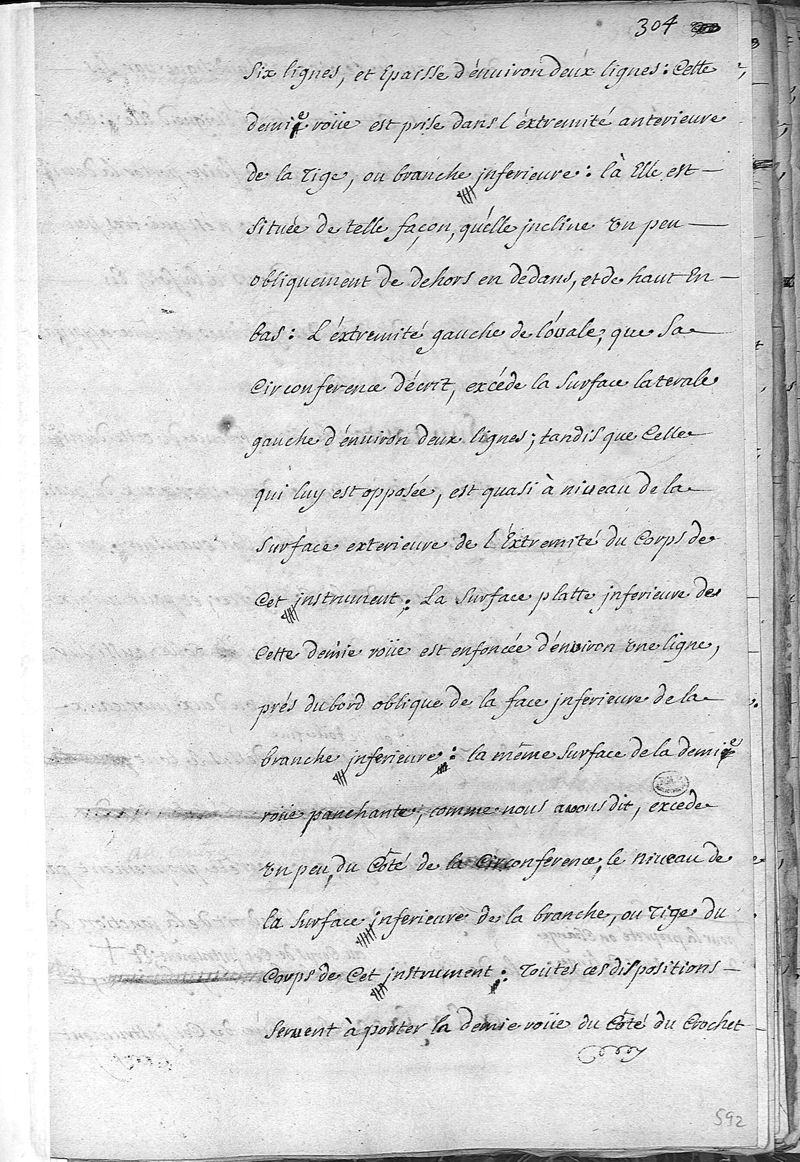 304
Six lignes, et Epaisse d'énviron deux lignes: Cette
demie roüe est prise dans l'éxtremité anterieure
de la Tige, ou branche jnferieure: là Elle est
Située de telle façon, qu'élle jncline Un peu
obliquement de dehors en dedans, et de haut En
bas: L'éxtremité gauche de l'óvale, que Sa
Circonference décrit, excéde la Surface laterale
gauche d'énviron deux lignes; tandis que Celle
qui luy est opposée, est quasi à niveau de la
Surface exterieure de l'Extremité du Corps de
Cet jnstrument: La Surface platte jnferieure de
Cette demie roüe est enfoncée d'énviron Une ligne,
prés du bord oblique de la face jnferieure de la
branche jnferieure: la même Surface de la demie
roüe panchante, comme nous avons dit, excede
Un peu, du Côté de la Circonference, le niveau de
la Surface jnferieure de la branche, ou Tige du
Corps de Cet jnstrument: Toutes ces dispositions
Servent à porter la demie roüe du Côté du Crochet
592